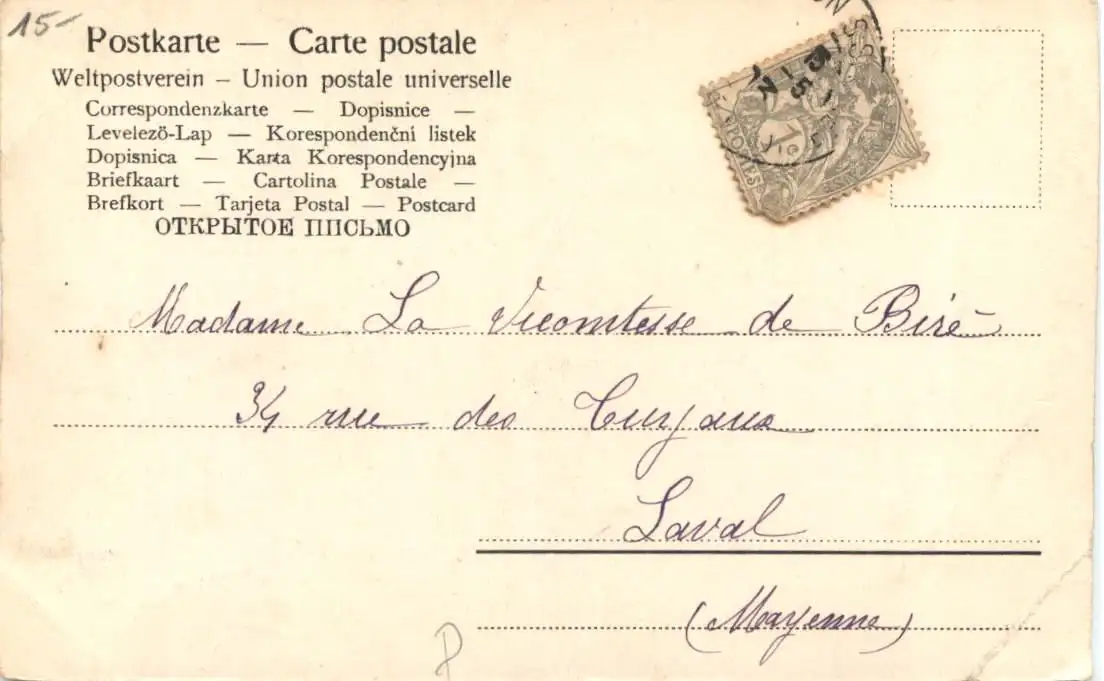 15-
Postkarte — Carte postale
Weltpostverein – Union postale universelle
Correspondenzkarte — Dopisnice —
Levelezö-Lap — Korespondenční listek
Dopisnica — Karta Korespondencyjna
Briefkaart — Cartolina Postale —
Brefkort — Tarjeta Postal — Postcard
ОТКРЫТОЕ ПИСЬМО
Madame La Vicomtesse de Biré
34 rue des
Laval
(Mayenne)